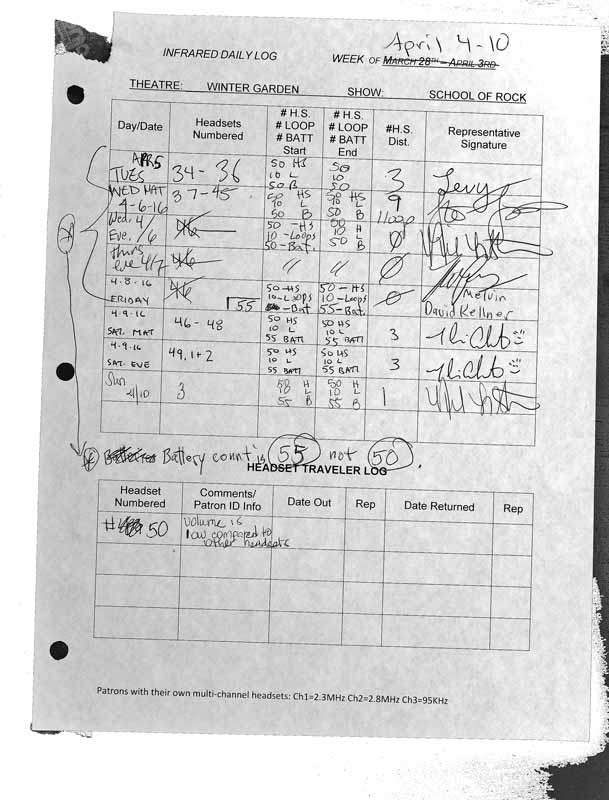 April 4-10
INFRARED DAILY LOG WEEK OF MARCH 28TH – APRIL 3RD
THEATRE: WINTER GARDEN SHOW: SCHOOL OF ROCK
Day/Date Headsets Numbered # H.S. # LOOP # BATT Start # H.S. # LOOP # BATT End #H.S. Dist. Representative Signature
APR 5
TUES 34-36 50 HS 10 L 50 B 50 10 50 3 Levy
WED MAT 4-6-16 37-45 50 HS 10 L 50 B 50 HS 10 L 50 B 9 1 loop
Wed. 4/6 Eve. 50 - HS 10 - Loops 50 - Bat. 50 H 10 L 50 B 0
Thurs eve 4/7 " " 0
4-8-16 FRIDAY 50 - HS 10 - Loops 55 - Bat 50 - HS 10 - Loops 55 - Bat. 0 Melvin David Kellner
4-9-16 SAT. MAT 46-48 50 HS 10 L 55 BATT 50 HS 10 L 55 BATT 3
4-9-16 SAT. EVE 49, 1+2 50 HS 10 L 55 BATT 50 HS 10 L 55 BATT 3
Sun 4/10 3 50 H 10 L 55 B 50 H 10 L 55 B 1
Battery count is 55 not 50.
HEADSET TRAVELER LOG
Headset Numbered Comments/ Patron ID Info Date Out Rep Date Returned Rep
# 50 Volume is low compared to other headsets
Patrons with their own multi-channel headsets: Ch1=2.3MHz Ch2=2.8MHz Ch3=95KHz